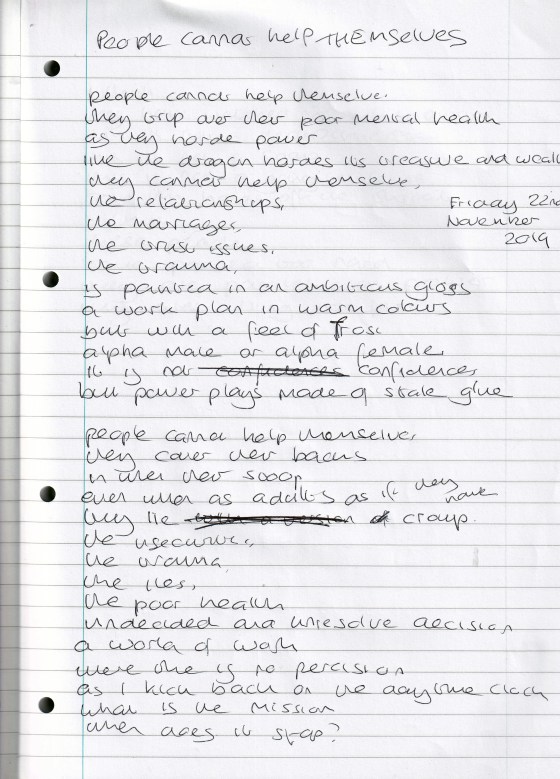 People cannot help THEMSELVES
people cannot help themselve.
they trip over their poor mental health
as they horde power
like the dragon hordes its treasure and wealt
they cannot help themselve,
the relationships,
Friday 22nd
November
2019
the marriages,
the trust issues,
the trauma,
is painted in an ambitious gloss
a work plan in warm colours
but with a feel of Frost
alpha male or alpha female,
it is not confidences
but power plays made of stale glue
people cannot help themselve,
they cover their backs
in their
even when as adults as if they have
they lie
the
the trauma,
the lies,
the poor health
undecided and unresolve decision
a world of work
were the is no percision
as I kick back on the daytime clock
what is the mission
when does it stop?